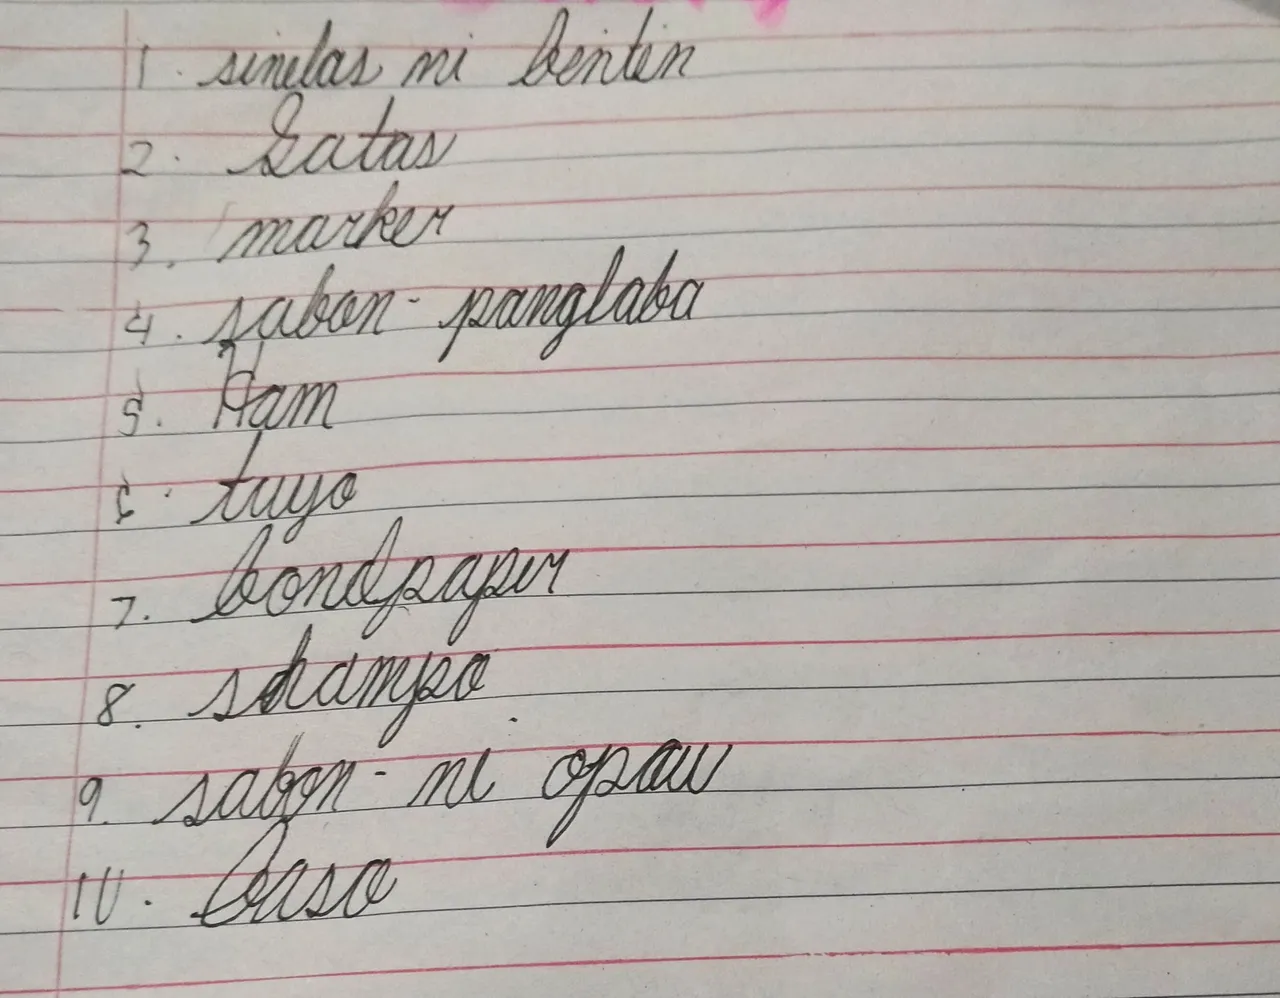 1. sinelas ni bentin
2. Gatas
3. marker
4. sabon - panglaba
5. Ham
6. tuyo
7. bondpaper
8. shampo
9. sabon - ni opaw
10. Baso